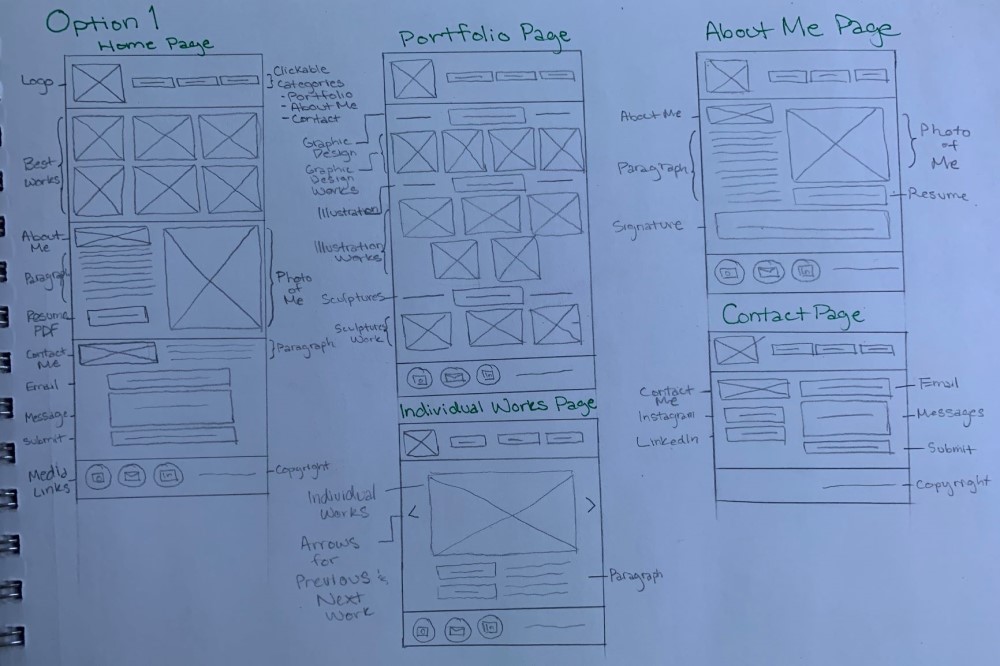 Option 1
Home Page
Logo
Clickable
Categories
- Portfolio
- About Me
- Contact
Best
Works
About
Me
Paragraph
Photo
of
Me
Resume
PDF
Contact
Me
Paragraph
Email
Message
Submit
Media
Links
Copyright
Portfolio Page
Graphic
Design
Graphic
Design
Works
Illustration
Illustration
Works
Sculptures
Sculpture
Work
Individual Works Page
Individual
Works
Arrows
for
Previous &
Next
Work
Paragraph
in
About Me Page
About Me
Paragraph
Photo
of
Me
Resume
Signature
in
Contact Page
Contact
Me
Instagram
LinkedIn
Email
Messages
Submit
Copyright